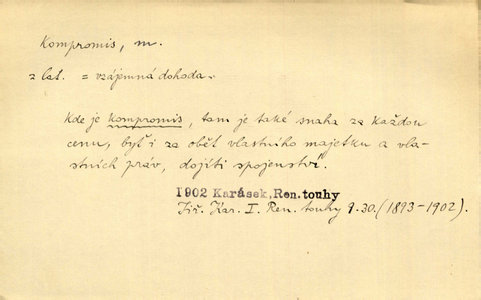 Kompromis, m.
z lat. = vzájemná dohoda.
Kde je kompromis, tam je také snaha za každou
cenu, byť i za oběť vlastního majetku a vla-
stních práv, dojíti spojenství.
1902 Karásek, Ren. touhy
Jiř. Kar. I. Ren. touhy 9.30. (1893-1902).